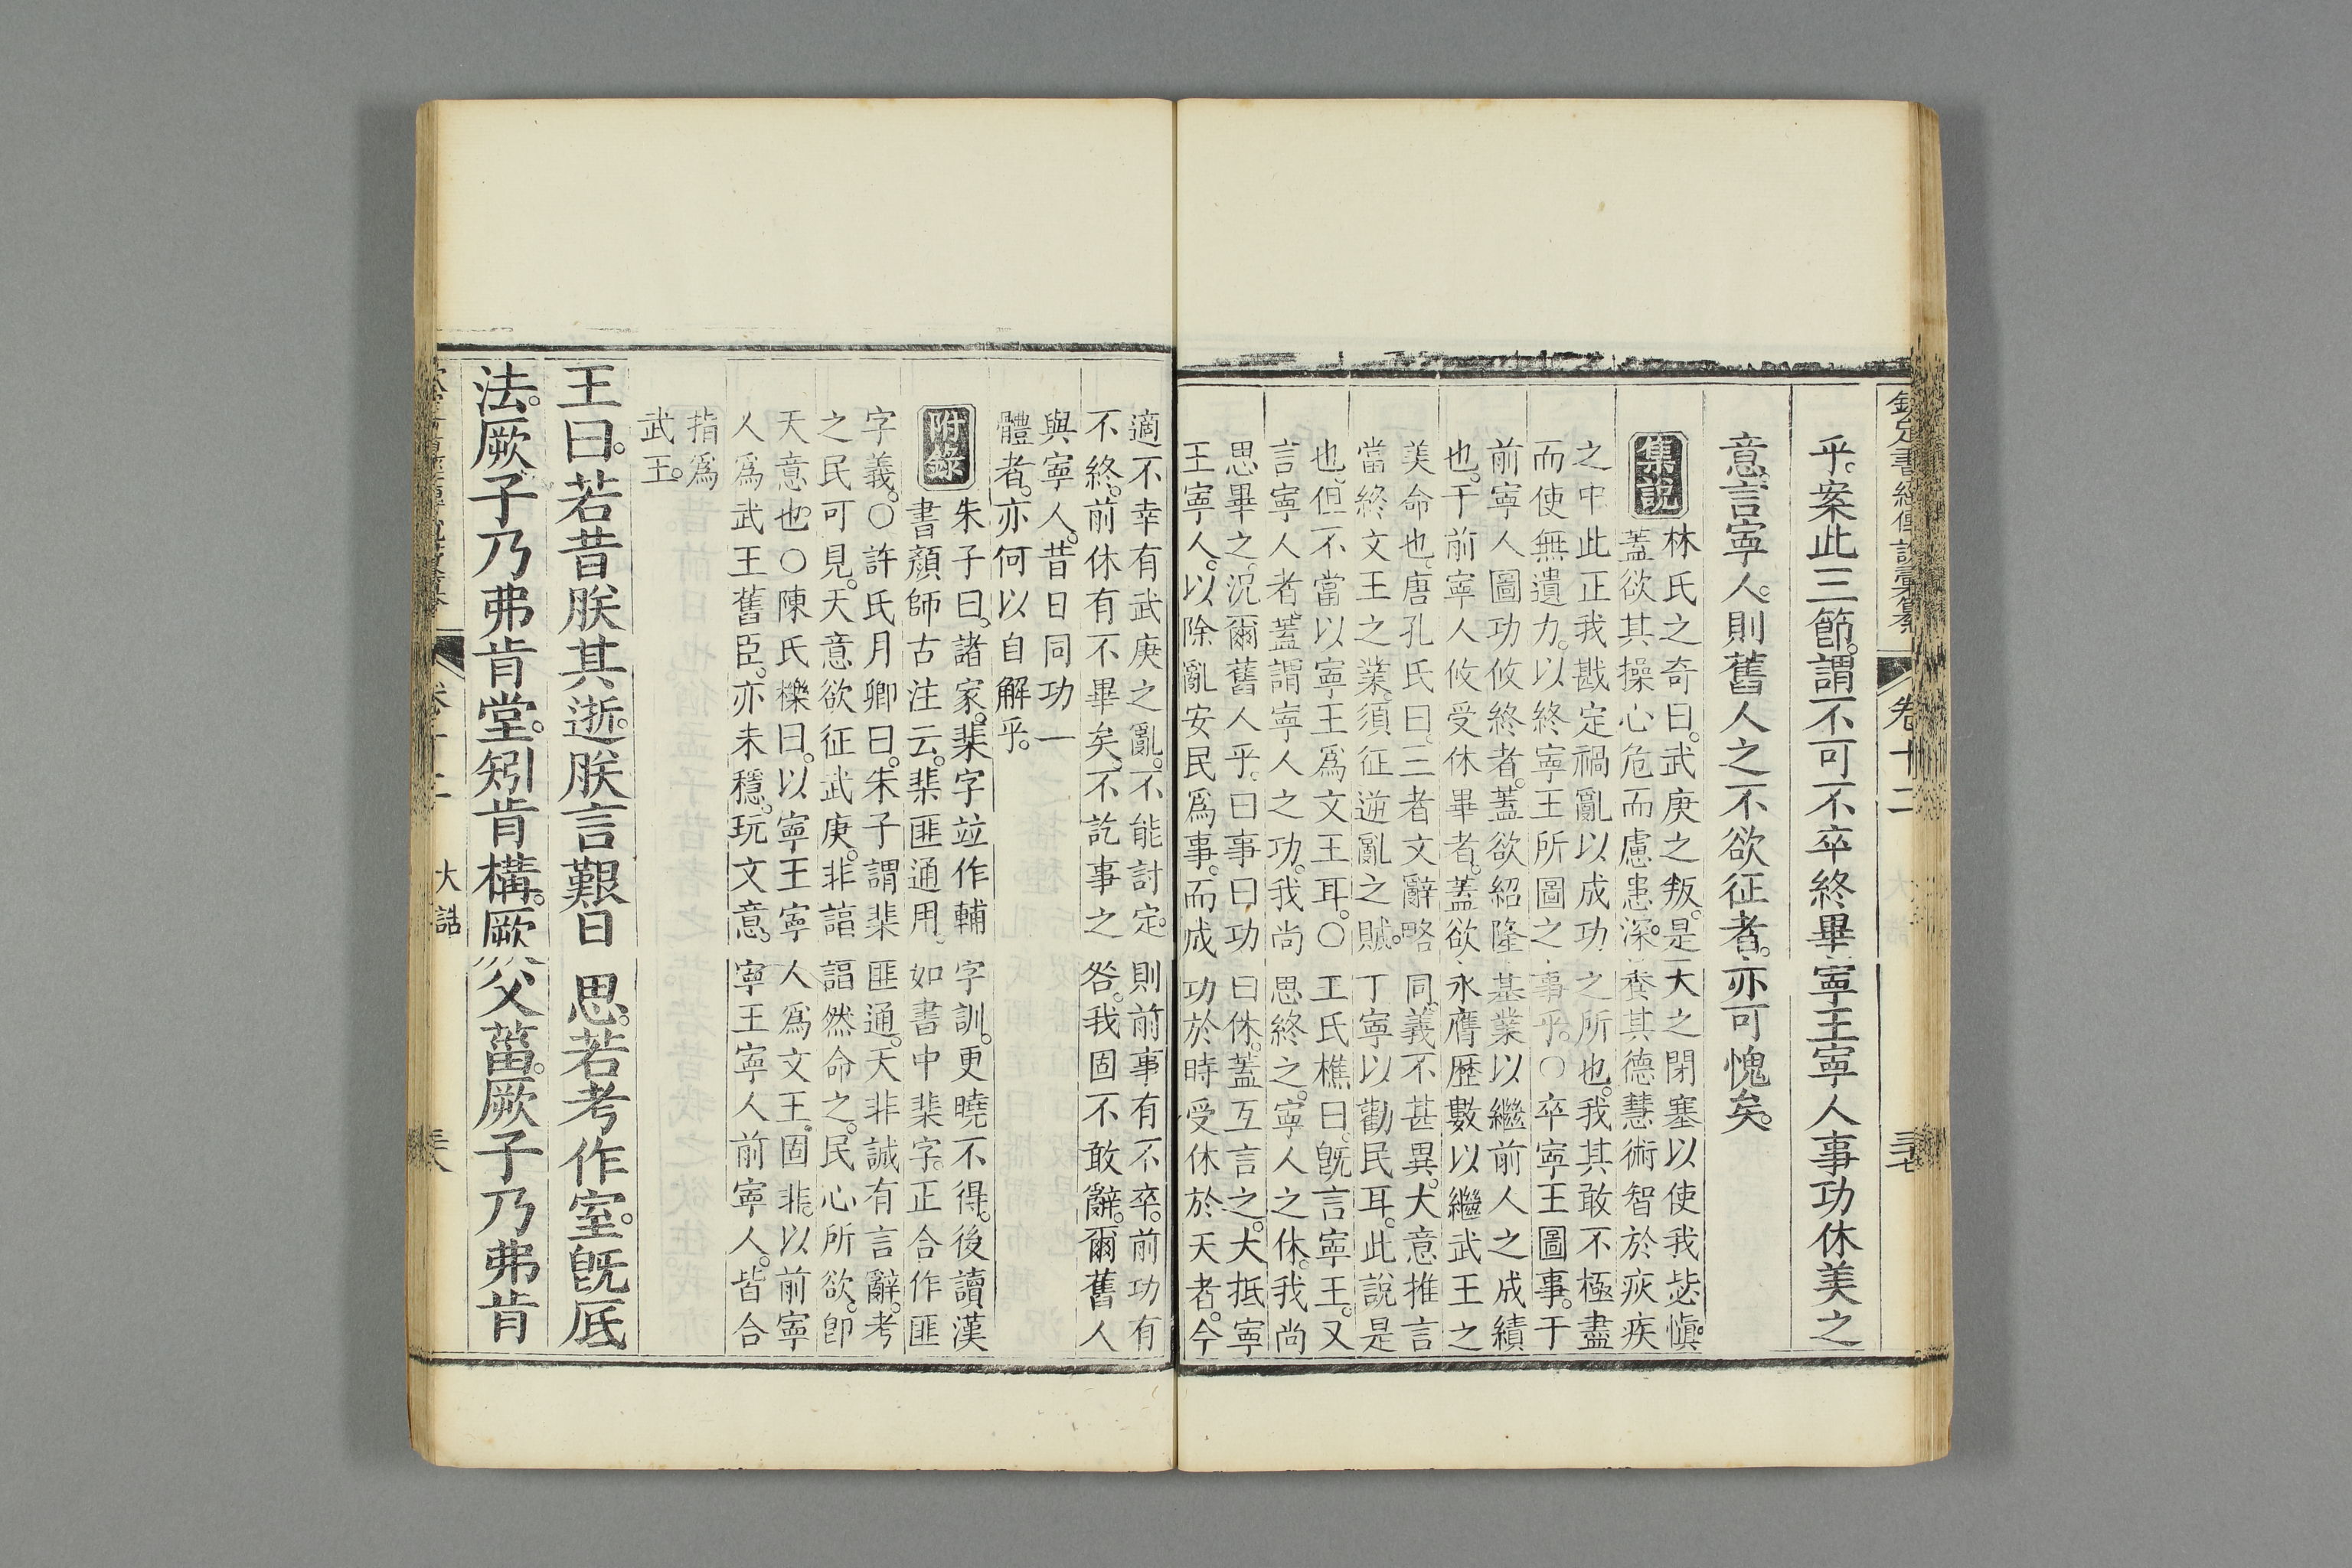 欽定書經傳說彙纂
卷十二
三七
乎。案此三節。謂不可不卒終畢寧王寧人事功休美之
意。言寧人。則舊人之不欲征者。亦可愧矣。
集說
林氏之奇曰。武庚之叛。是天之閉塞以使我毖愼。
蓋欲其操心危而慮患深。養其德慧術智於疢疾
之中。此正我戡定禍亂以成功之所也。我其敢不極盡
而使無遺力。以終寧王所圖之事乎。○卒寧王圖事。于
前寧人圖功攸終者。蓋欲紹隆基業以繼前人之成績
也。于前寧人攸受休畢者。蓋欲永膺歷數以繼武王之
美命也。唐孔氏曰。三者文辭略同。義不甚異。大意推言
當終文王之業。須征逆亂之賊。丁寧以勸民耳。此說是
也。但不當以寧王爲文王耳。○王氏樵曰。旣言寧王。又
言寧人者。蓋謂寧人之功。我尚思終之。寧人之休。我尚
思畢之。況爾舊人乎。曰事曰功曰休。蓋互言之。大抵寧
王寧人。以除亂安民爲事。而成功於時受休於天者。今
適不幸有武庚之亂。不能討定。則前事有不卒。前功有
不終。前休有不畢矣。不訖事之咎。我固不敢辭。爾舊人
與寧人。昔日同功一
體者。亦何以自解乎。
附錄
朱子曰。諸家。棐字竝作輔字訓。更曉不得。後讀漢
書顏師古注云。棐匪通用。如書中棐字。正合作匪
字義。○許氏月卿曰。朱子謂棐匪通。天非諶有言辭。考
之民可見。天意欲征武庚。非諄諄然命之。民心所欲。卽
天意也。○陳氏櫟曰。以寧王寧人爲文王。固非。以前寧
人爲武王舊臣。亦未穩。玩文意。寧王寧人前寧人。皆合
指爲
武王。
王曰。若昔朕其逝。朕言艱日思。若考作室。旣厎
法。厥子乃弗肯堂。矧肯構。厥父菑。厥子乃弗肯
卷十二
大誥
三八